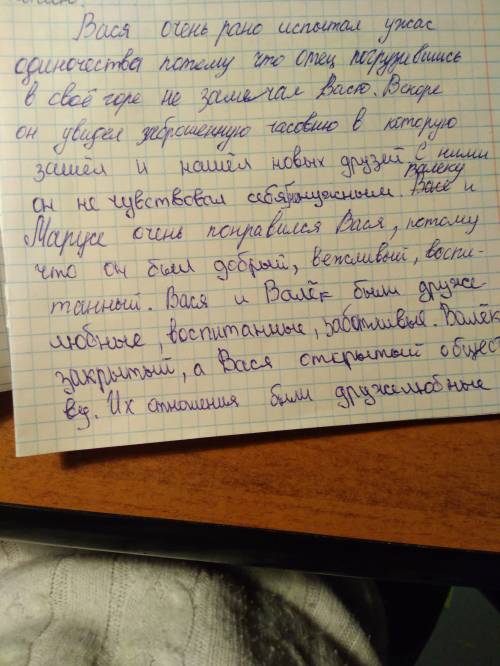 Вася очень рано испытал ужас
одиночества потому что отец погрузившись
в своё горе не замечал Васю. Вскоре
он увидел заброшенную часовню в которую
зашёл и нашёл новых друзей. С ними
он не чувствовал себя Валеку и
Марусе очень понравился Вася, потому
что он был добрый, вежливый, воспи-
танный. Вася и Валёк были друже
любные, воспитанные, заботливые. Валёк
закрытый, а Вася открытый общест
вед. Их отношения были дружелюбные